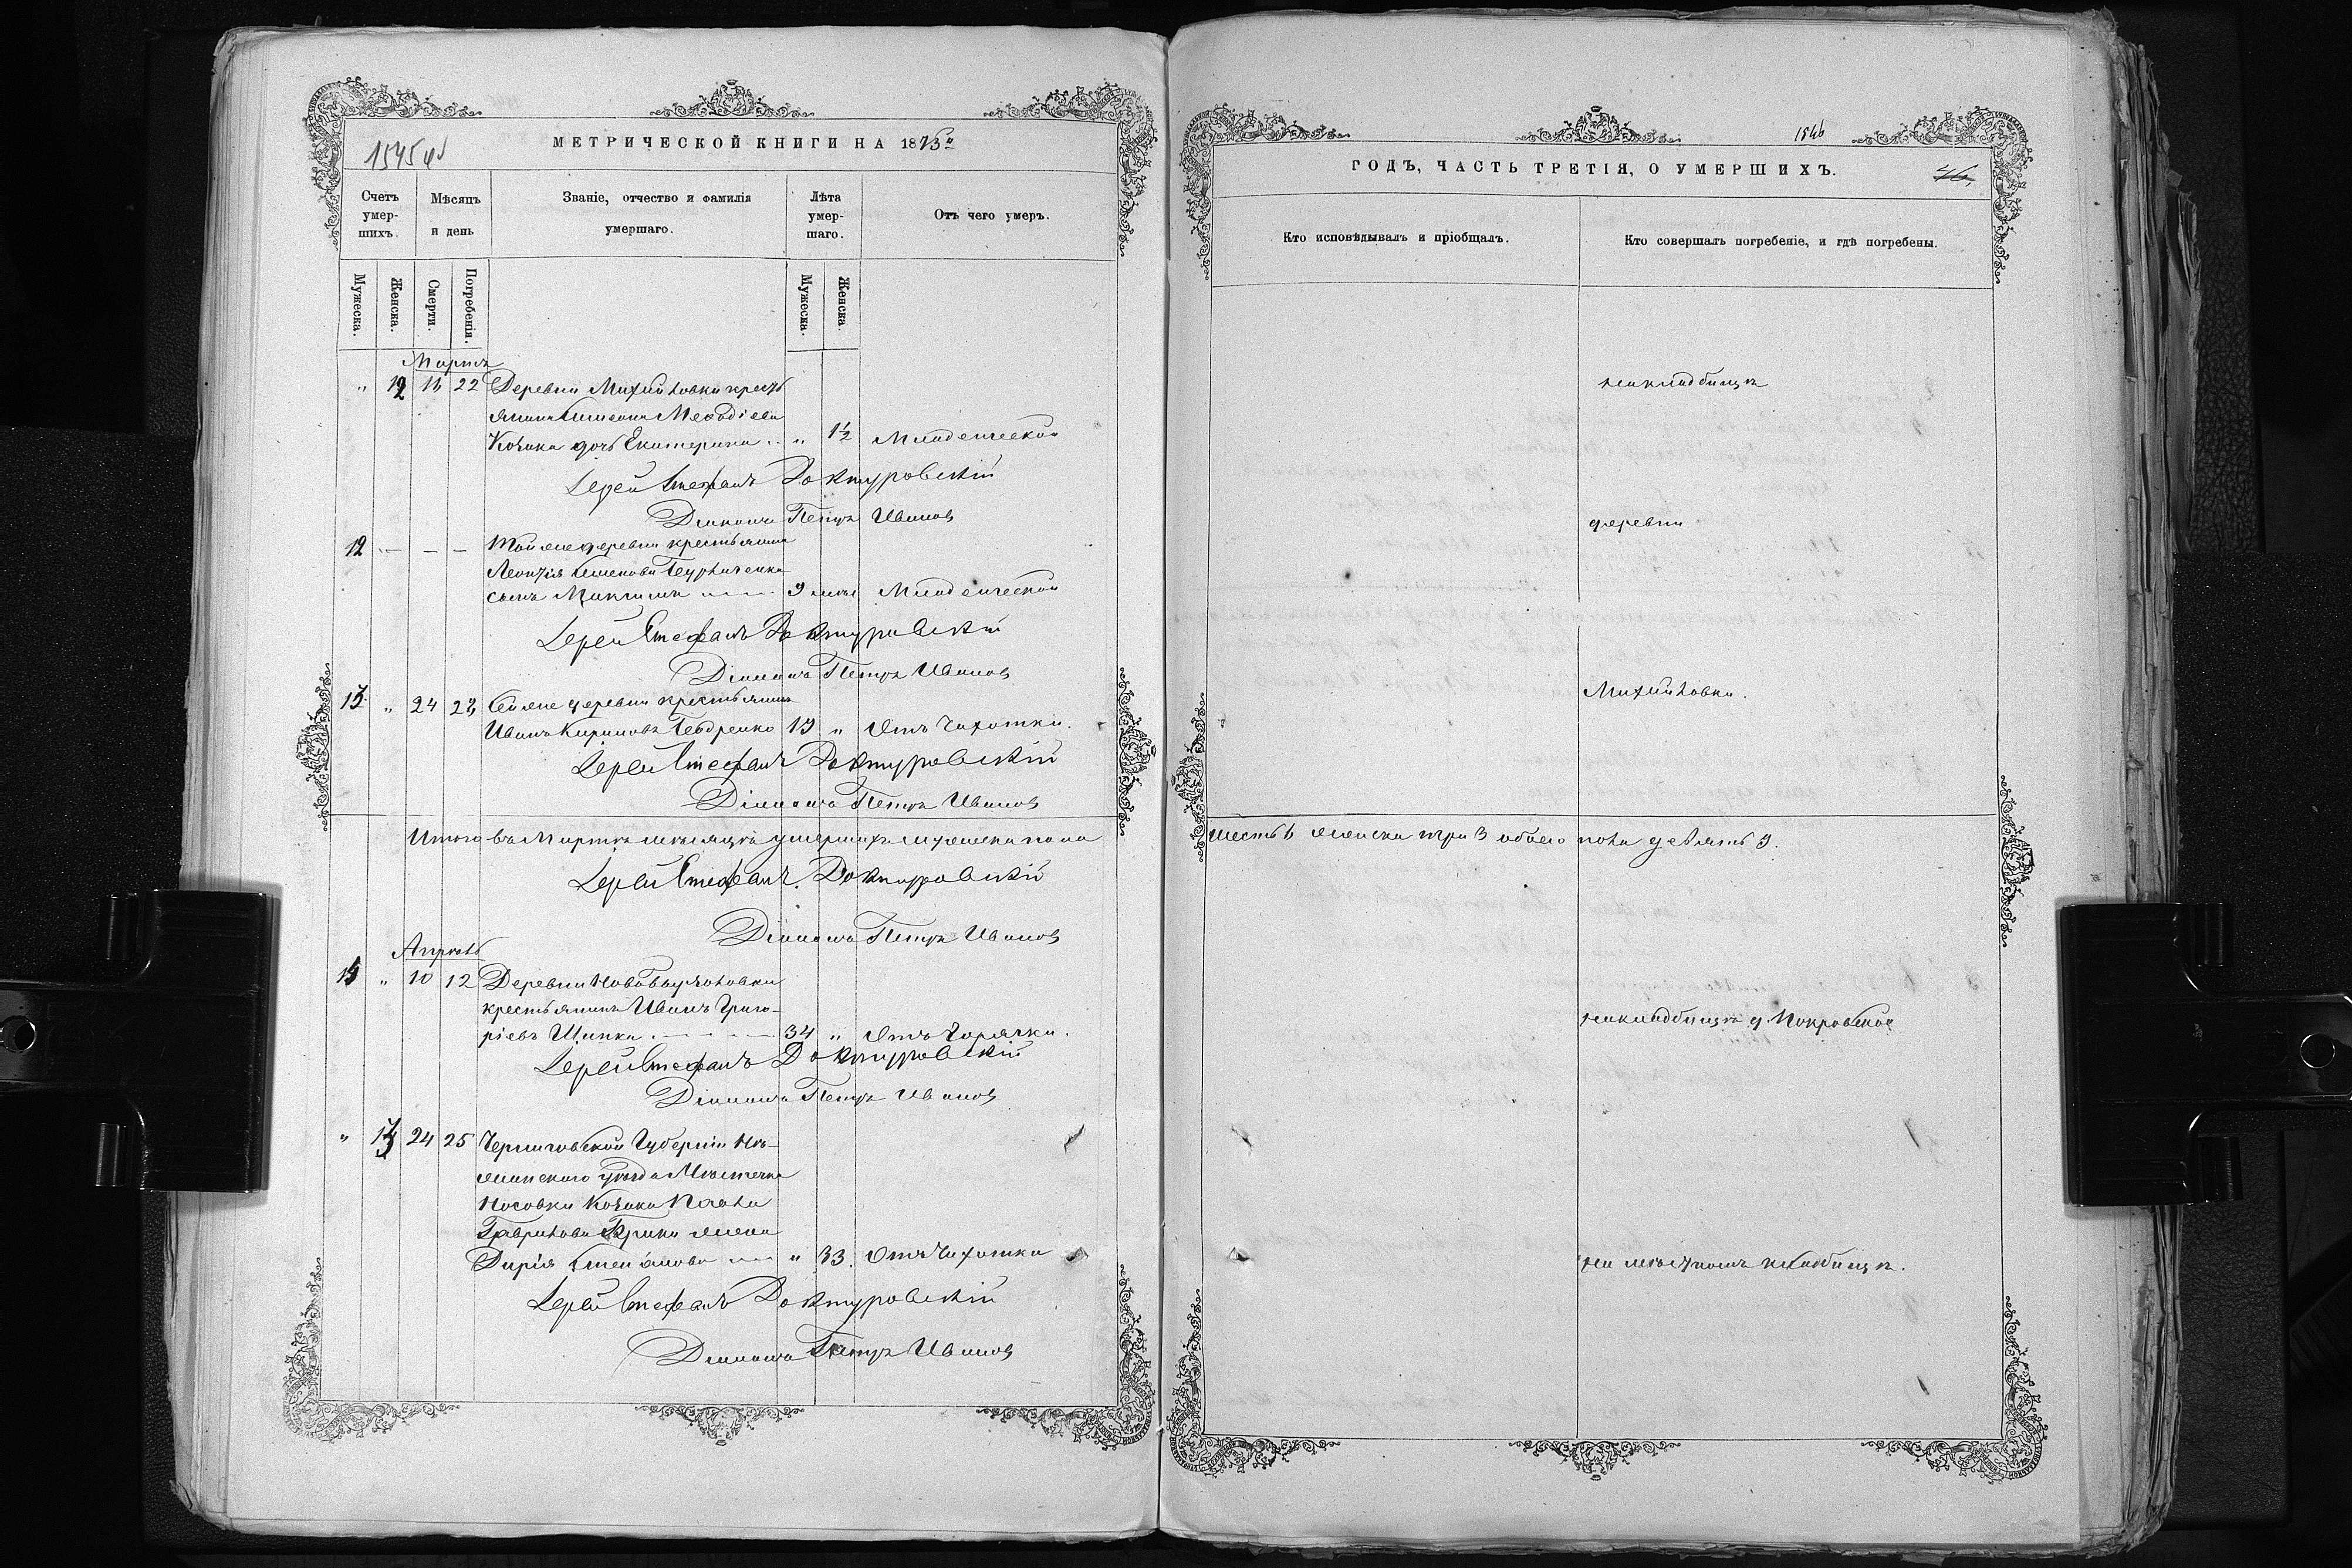 1545 об
МЕТРИЧЕСКОЙ КНИГИ НА 1873й
Счетъ умер-шихъ.
Мѣсяцъ и день
Званіе, отчество и фамилія умершаго.
Лѣта умер-шаго.
Отъ чего умеръ.
Мужеска.
Женска.
Смерти.
Погребенія.
Мужеска.
Женска.
Мартъ
" 12 22 Деревни Михайловки кресть
янина Семена Меѳодіева
Козака дочь Екатерина " 1½ Младенческой
Іерей Стефанъ Доктуровскій
Діаконъ Петръ Ивановъ
12 - - - Той же деревни крестьянина
Леонтія Семенова
сынъ Максимъ 9 мѣс Младенческой
Іерей Стефанъ Доктуровскій
Діаконъ Петръ Ивановъ
13 " 24 Сей же деревни крестьянинъ
Иванъ Кириловъ Ѳедренко 19 " Отъ Чахотки.
Іерей Стефанъ Доктуровскій
Діаконъ Петръ Ивановъ
Итого въ Мартѣ мѣсяцѣ умершихъ мужеска пола
Іерей Стефанъ Доктуровскій
Діаконъ Петръ Ивановъ
Апрѣль
" 10 12 Деревни
крестьянинъ Иванъ Григо-
ріевъ 34 " Отъ Горячки.
Іерей Стефанъ Доктуровскій
Діаконъ Петръ Ивановъ
" 13 24 25 Черниговской Губерніи Нѣ-
жинскаго уѣзда Мѣстечка
Носовки Козака Павла
Гаврилова жена
Дарія Степанова " 33. Отъ Чахотки
Іерей Стефанъ Доктуровскій
Діаконъ Петръ Ивановъ
1546
ГОДЪ, ЧАСТЬ ТРЕТІЯ, О УМЕРШИХЪ.
46.
Кто исповѣдывалъ и пріобщалъ.
Кто совершалъ погребеніе, и гдѣ погребены.
на кладбищѣ
деревни
Михайловки.
шесть 6 женска три 3 обоего пола девять 9.
на кладбищѣ д. Покровское
на мѣстномъ кладбищѣ.